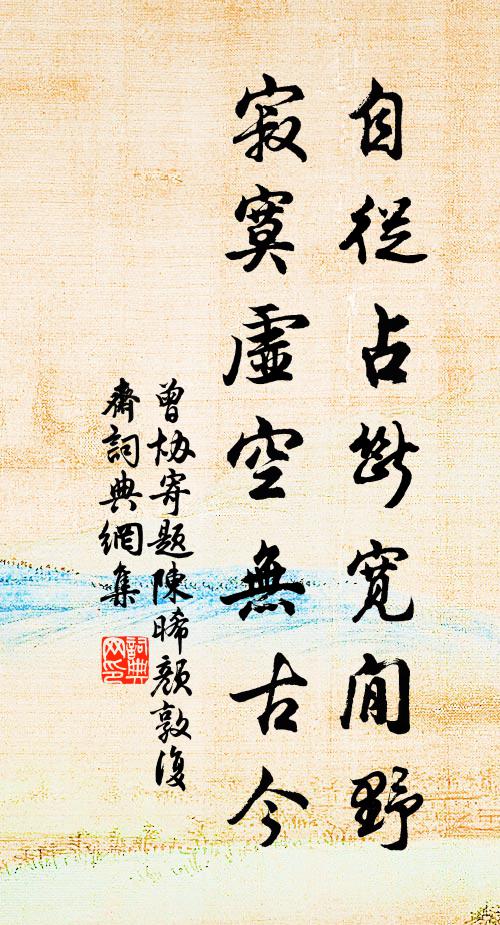 自從占斷寬閒野
寂寞虛空無古今
曾協寄題陳晞顏敦復
齋詞典網集
詞典
网印